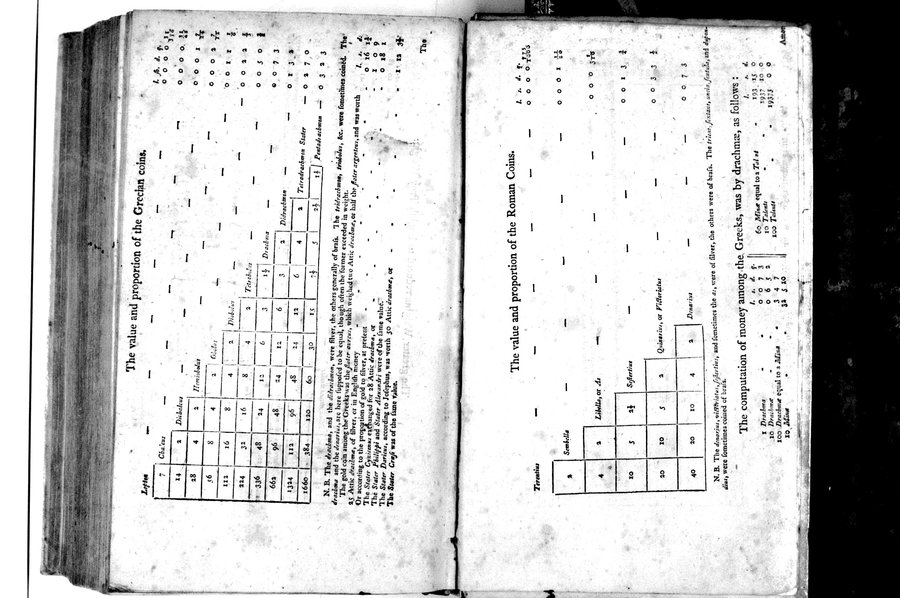 The value and proportion of the Grecian coins.
l. sh. d. q.
Lepton
7 Chalcus 0 0 0
14 2 Dichalcus 0 0 0
28 4 2 Hemiobolus 0 0 0
56 8 4 2 Obolus 0 0 1
112 16 8 4 2 Diobolus 0 0 2
224 32 16 8 4 2 Tetrobolus 0 0 5
336 48 24 12 6 3 1½ Drachma 0 0 7 3
662 96 48 24 12 6 3 2 Didrachmon 0 1 3 2
1324 112 96 48 24 12 6 4 2 Tetradrachmon Stater 0 2 7 0
1660 384 120 60 30 15 7½ 5 2½ 1¼ Pentadrachmon 0 3 2 3
N. B. The drachma, and the didrachmon, were silver, the others generally of brass. The tridrachmon, triobolus, &c. were sometimes coined. The
drachma and the denarius, are here supposed to be equal, though often the former exceeded in weight.
The gold coin among the Greeks was the stater aureus, which weighed two Attic drachms, or half the stater argenteus, and was worth
25 Attic drachms, of silver, or in English money
Or according to the proportion of gold to silver, at present
The Stater Cyzicenus exchanged for 28 Attic drachms, or
The Stater Philippi and Stater Alexandri were of the same value.
The Stater Daricus, according to Josephus, was worth 50 Attic drachms, or
The Stater Crœsi was of the same value.
l. s. d.
0 16 1¾
1 0 9
0 18 1
1 12 3½
The
The value and proportion of the Roman Coins.
l. s. d. q.
Teruntius 0 0 0
2 Sembella 0 0 1
4 2 Libella, or As 0 0 3
10 5 2½ Sestertius 0 0 1 3
20 10 5 2 Quinarius, or Victoriatus 0 0 3 3
40 20 10 4 2 Denarius 0 0 7 3
N. B. The denarius, victoriatus, sestertius, and sometimes the as, were of silver, the others were of brass. The triens, sextans, uncia, sextula, and
were sometimes coined of brass.
The computation of money among the Greeks, was by drachmæ, as follows:
l. s. d. q.
1 Drachma 0 0 7 3
10 Drachmæ 0 6 5 2
100 Drachmæ equal to a Mina 3 4 7
10 Minæ 32 5 10
l. s. d.
60 Minæ equal to a Talent 193 15 0
10 Talents 1937 10 0
100 Talents 19375 0 0